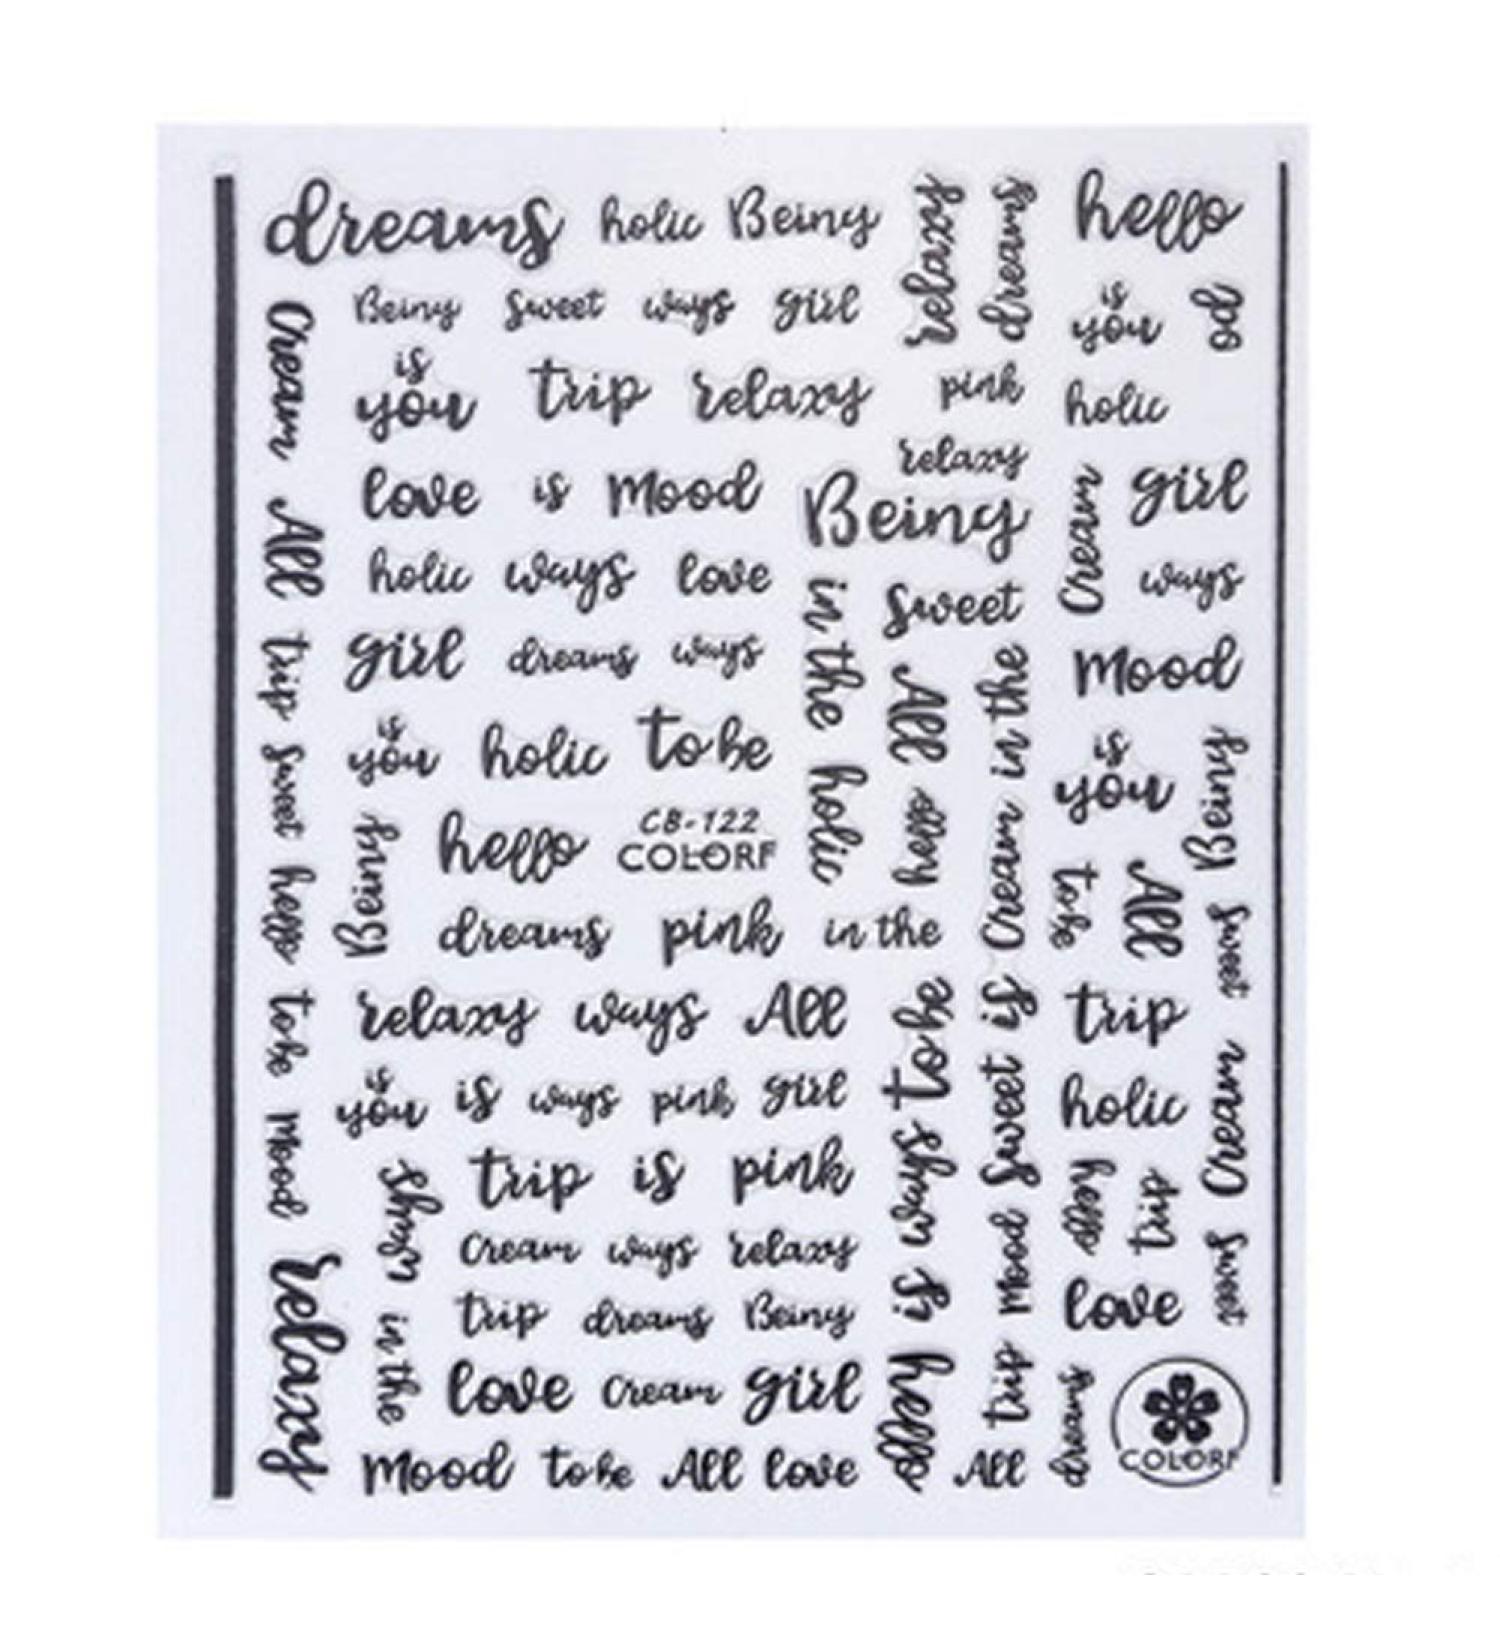 dreams holic Being
relaxy
dreams
hello
Being Sweet ways girl
is
you
od
Cream All trip Sweet hello to be Mood relaxy
is
you
trip relaxy
pink
holic
relaxy
love is Mood
Being
Cream
girl
holic ways love
in the holic
Sweet
ways
girl dreams ways
All
hello
Cream in the
Mood
is
you
holic to be
is
you
Being
Being
hello
CB-122
COLORF
to be
All
dreams pink in the
Sweet
relaxy ways All
is ways to be
Sweet is
trip
is
you
is ways pink girl
holic
Cream
trip is pink
ways
in the
hello
trip
Cream ways relaxy
Mood
Sweet
trip dreams Being
love
love Cream girl
hello
trip
dreams
COLORF
Mood to be All love
All